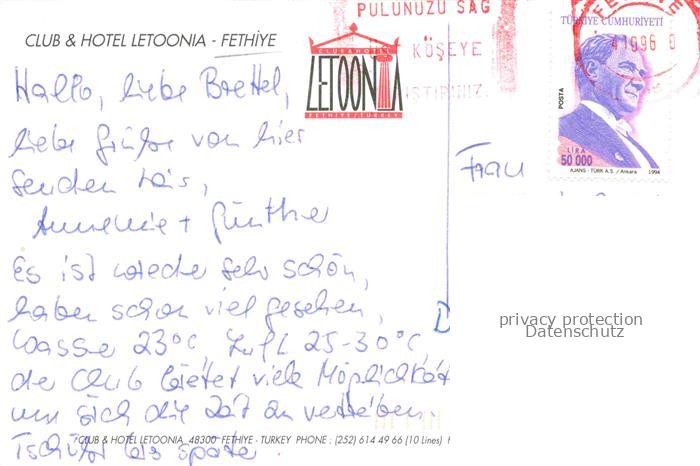 PULUNUZU SAĞ
KÖŞEYE
CLUB & HOTEL LETOONIA - FETHİYE
CLUB & HOTEL
LETOONIA
FETHIYE/TURKEY
TÜRKİYE CUMHURİYETİ
1996
POSTA
LİRA
50 000
AJANS - TÜRK A.S. / Ankara 1994
Hallo, liebe Baettel,
liebe Grüße von hier
senden Dir,
Annemie + Günther
Es ist wieder sehr schön,
haben schon viel gesehen,
Wasser 23°C, Luft 25-30°C
der Club bietet viele Möglichkeit
um sich die Zeit zu vertreiben.
Tschüß bis später
Frau
D
privacy protection
Datenschutz
CLUB & HOTEL LETOONIA, 48300 FETHİYE - TURKEY PHONE : (252) 614 49 66 (10 Lines)